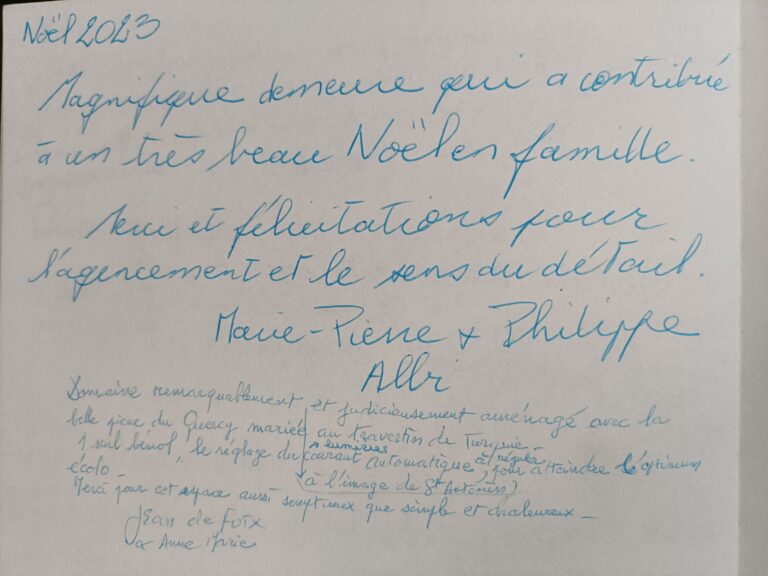 Noël 2023
Magnifique demeure qui a contribué
à un très beau Noël en famille.
Merci et félicitations pour
l'agencement et le sens du détail.
Marie-Pierre & Philippe
Domaine remarquablement et judicieusement aménagé avec la
belle pierre du Quercy mariée au travertin de Turquie –
1 seul bémol, le réglage du courant automatique à réguler, pour atteindre l'optimum
lumières
écolo – (à l'image de St Antonin)
Merci pour cet espace aussi somptueux que simple et chaleureux –
Jean de Foix
& Anne Marie